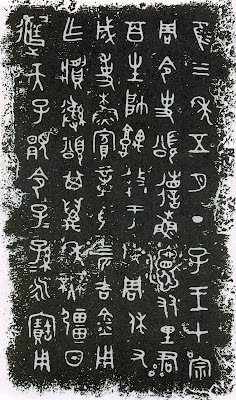 隹三年五月丁子王才宗
周令史頌穌友里君
百生帥盩于成周休又
成事穌賓章馬四匹吉金用
乍彝頌其萬年無疆日
天子令子子孫孫永寶用